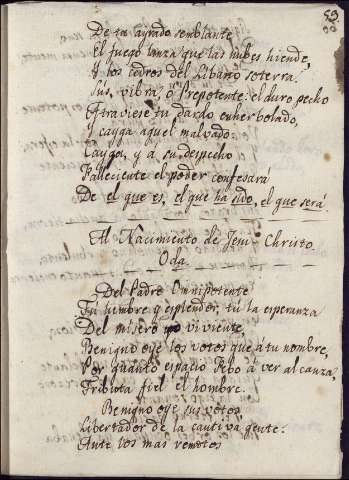 59
De tu ayrado semblante
El fuego lanza que las nubes hiende,
Y los cedros del Libano soterra.
Sus, vibra, ô Prepotente: el duro pecho
Atraviese tu dardo enherbolado,
Y cayga aquel malvado:
Cayga, y a su despecho
Falleciente el poder confesará
De el que es, el que ha sido, el que será.
Al Nacimiento de Jesu-Christo
Oda.
Del Padre Omnipotente
Tu lumbre y esplendor, tú la esperanza
Del misero viviente,
Benigno oye los votos que á tu nombre,
Por quanto espacio Febo à ver alcanza,
Tributa fiel el hombre.
Benigno oye sus votos
Libertador de la cautiva gente:
Ante los mas remotos